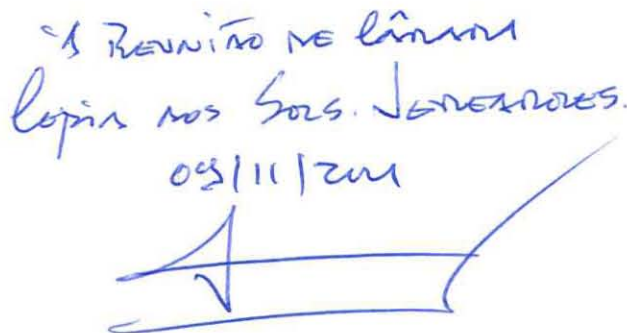 À REUNIÃO DE CÂMARA
Copia aos Srs. VEREADORES.
09/11/2011